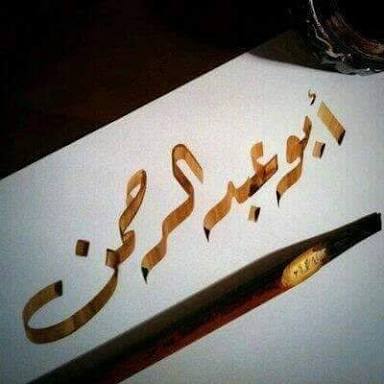 أبو عبد الرحمن